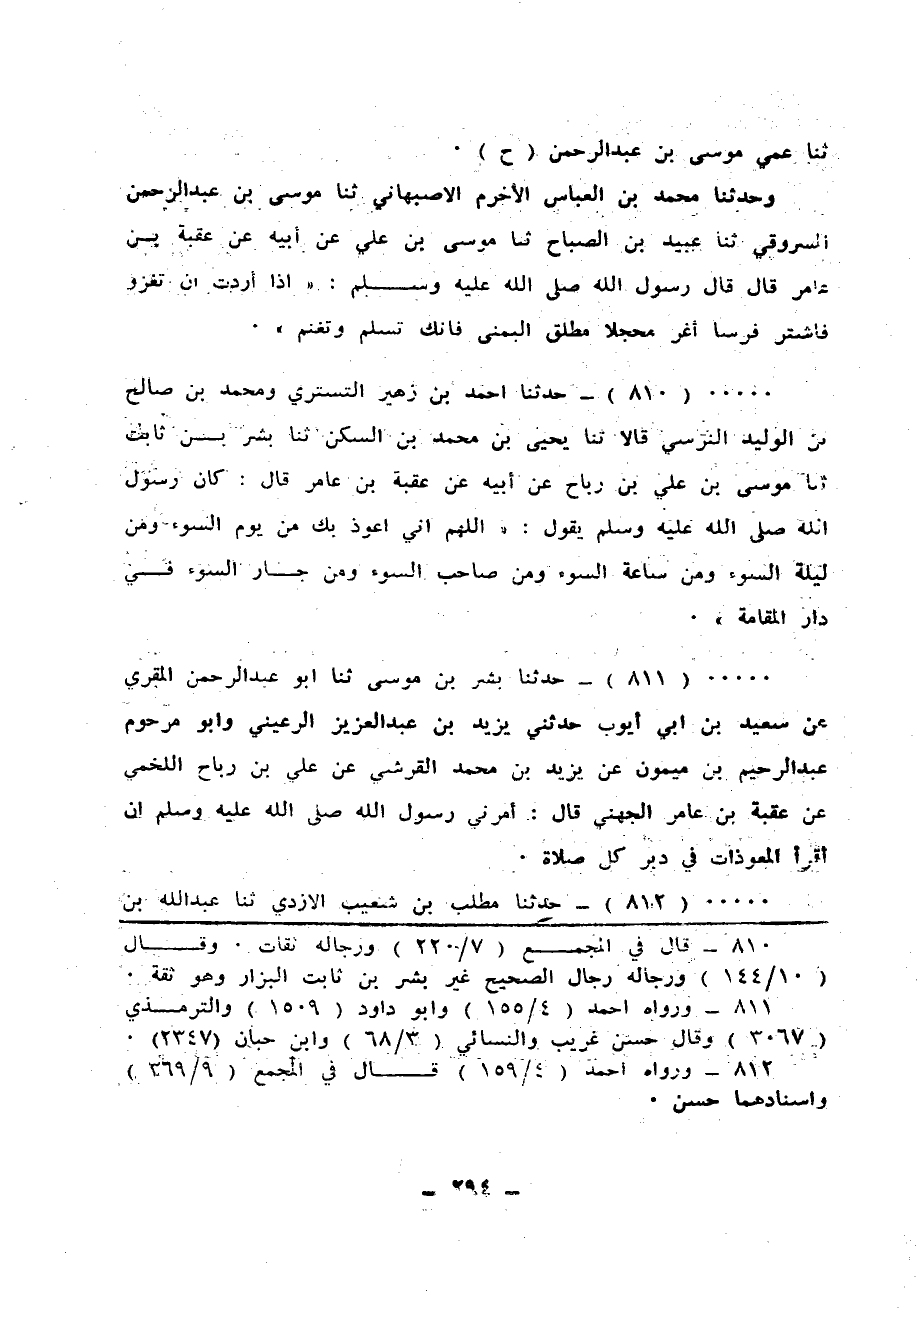 ثنا عمي موسى بن عبدالرحمن ( ح ) ٠
وحدثنا محمد بن العباس الأخرم الاصبهاني ثنا موسى بن عبدالرحمن
السروقي ثنا عبيد بن الصباح ثنا موسى بن علي عن أبيه عن عقبة بن
عامر قال قال رسول الله صلى الله عليه وسلم : « اذا أردت ان تغزو
فاشتر فرسا أغر محجلا مطلق اليمنى فانك تسلم وتغنم » ٠
٠٠٠٠٠ ( ٨١٠ ) ــ حدثنا احمد بن زهير التستري ومحمد بن صالح
بن الوليد النرسي قالا ثنا يحيى بن محمد بن السكن ثنا بشر بن ثابت
ثنا موسى بن علي بن رباح عن أبيه عن عقبة بن عامر قال : كان رسول
الله صلى الله عليه وسلم يقول : « اللهم اني اعوذ بك من يوم السوء ومن
ليلة السوء ومن ساعة السوء ومن صاحب السوء ومن جار السوء في
دار المقامة » ٠
٠٠٠٠٠ ( ٨١١ ) ــ حدثنا بشر بن موسى ثنا ابو عبدالرحمن المقري
عن سعيد بن ابي أيوب حدثني يزيد بن عبدالعزيز الرعيني وابو مرحوم
عبدالرحيم بن ميمون عن يزيد بن محمد القرشي عن علي بن رباح اللخمي
عن عقبة بن عامر الجهني قال : أمرني رسول الله صلى الله عليه وسلم ان
أقرأ المعوذات في دبر كل صلاة ٠
٠٠٠٠٠ ( ٨١٢ ) ــ حدثنا مطلب بن شعيب الازدي ثنا عبدالله بن
٨١٠ ــ قال في المجمع ( ٢٢٠/٧ ) ورجاله ثقات ٠ وقال
( ١٤٤/١٠ ) ورجاله رجال الصحيح غير بشر بن ثابت البزار وهو ثقة ٠
٨١١ ــ ورواه احمد ( ١٥٥/٤ ) وابو داود ( ١٥٠٩ ) والترمذي
( ٣٠٦٧ ) وقال حسن غريب والنسائي ( ٦٨/٣ ) وابن حبان (٢٣٤٧) ٠
٨١٢ ــ ورواه احمد ( ١٥٩/٤ ) قال في المجمع ( ٣٦٩/٩ )
واسنادهما حسن ٠
ــ ٢٩٤ ــ